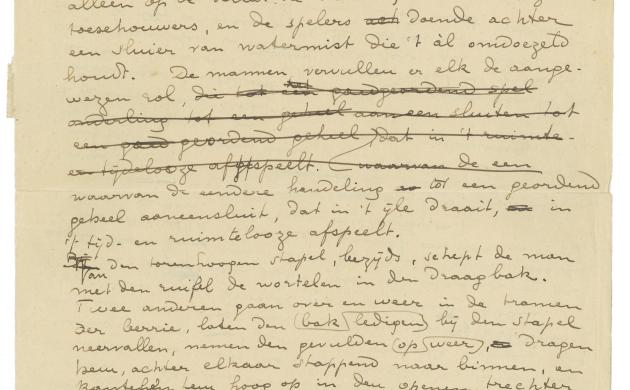 alleen op de
toeschouwers, en de spelers ach doende achter
een sluier van watermist die 't àl omdoezeld
houdt. De mannen vervullen er elk de aange-
wezen rol, die tot een goedgeordend spel
onderling tot een geheel aaneen sluiten tot
een goed geordend geheel, dat in 't ruimte-
en tijdelooze afspeelt. (waarvan de een
waarvan de eendere handeling tot een geordend
geheel aaneensluit, dat in 't ijle draait, in
't tijd- en ruimtelooze afspeelt.
Van den torenhoogen stapel, bezijds, schept de man
met den ruifel de wortelen in den draagbak.
Twee anderen gaan over en weer in de tramen
der berrie, laten den (bak ledigen) bij den stapel
neervallen, nemen den gevulden (op weer), dragen
hem, achter elkaar stappend naar binnen, en
kantelen hem hoog op in den openen trechter